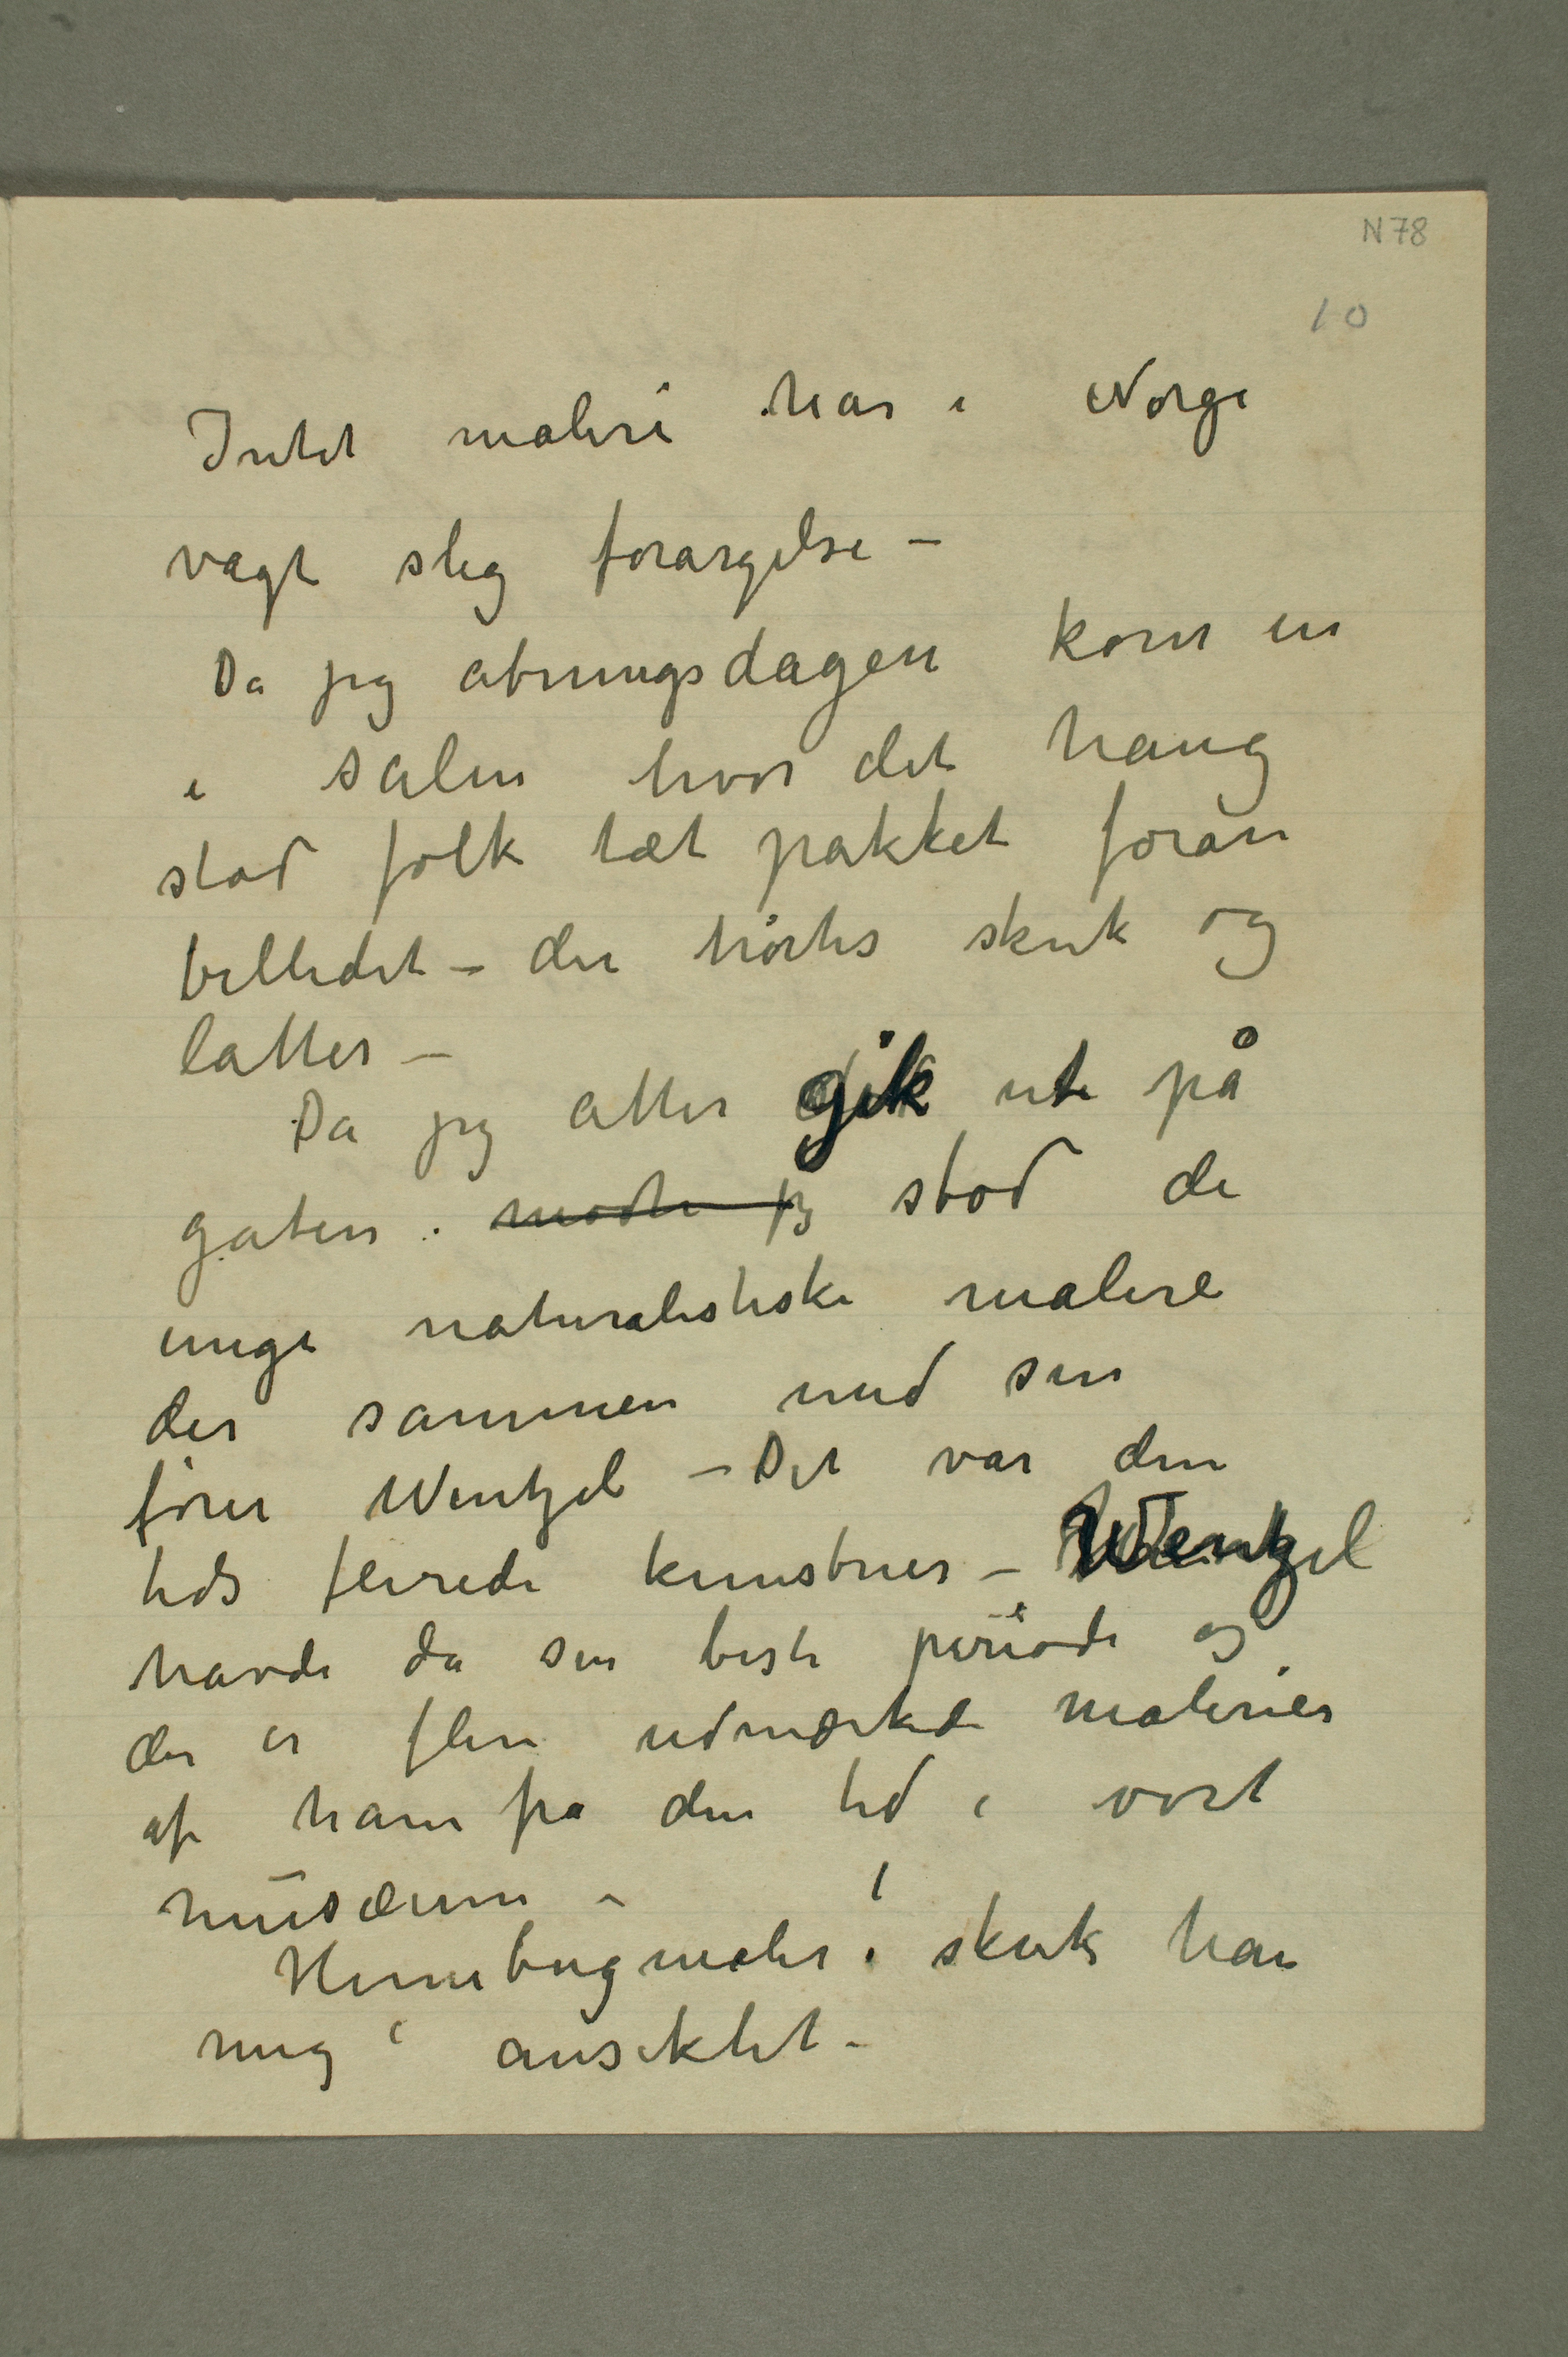 N 78
10
Intet maleri har i Norge
vagt slig forargelse –
Da jeg abningsdagen kom in
i salen hvor det hang
stod folk tæt pakket foran
billedet – der hørtes skrik og
latter –
Da jeg atter gik ute på
gaten . mødte jeg stod de
unge naturalistiske malere
der sammen med sin
fører Wentzel – Det var den
tids feirede kunstner – Wentzel
havde da sin beste periode og
der er flere udmærkede malerier
af ham fra den tid i vort
musæum –
Humbugmaler! skrek han
mig i ansiktet –